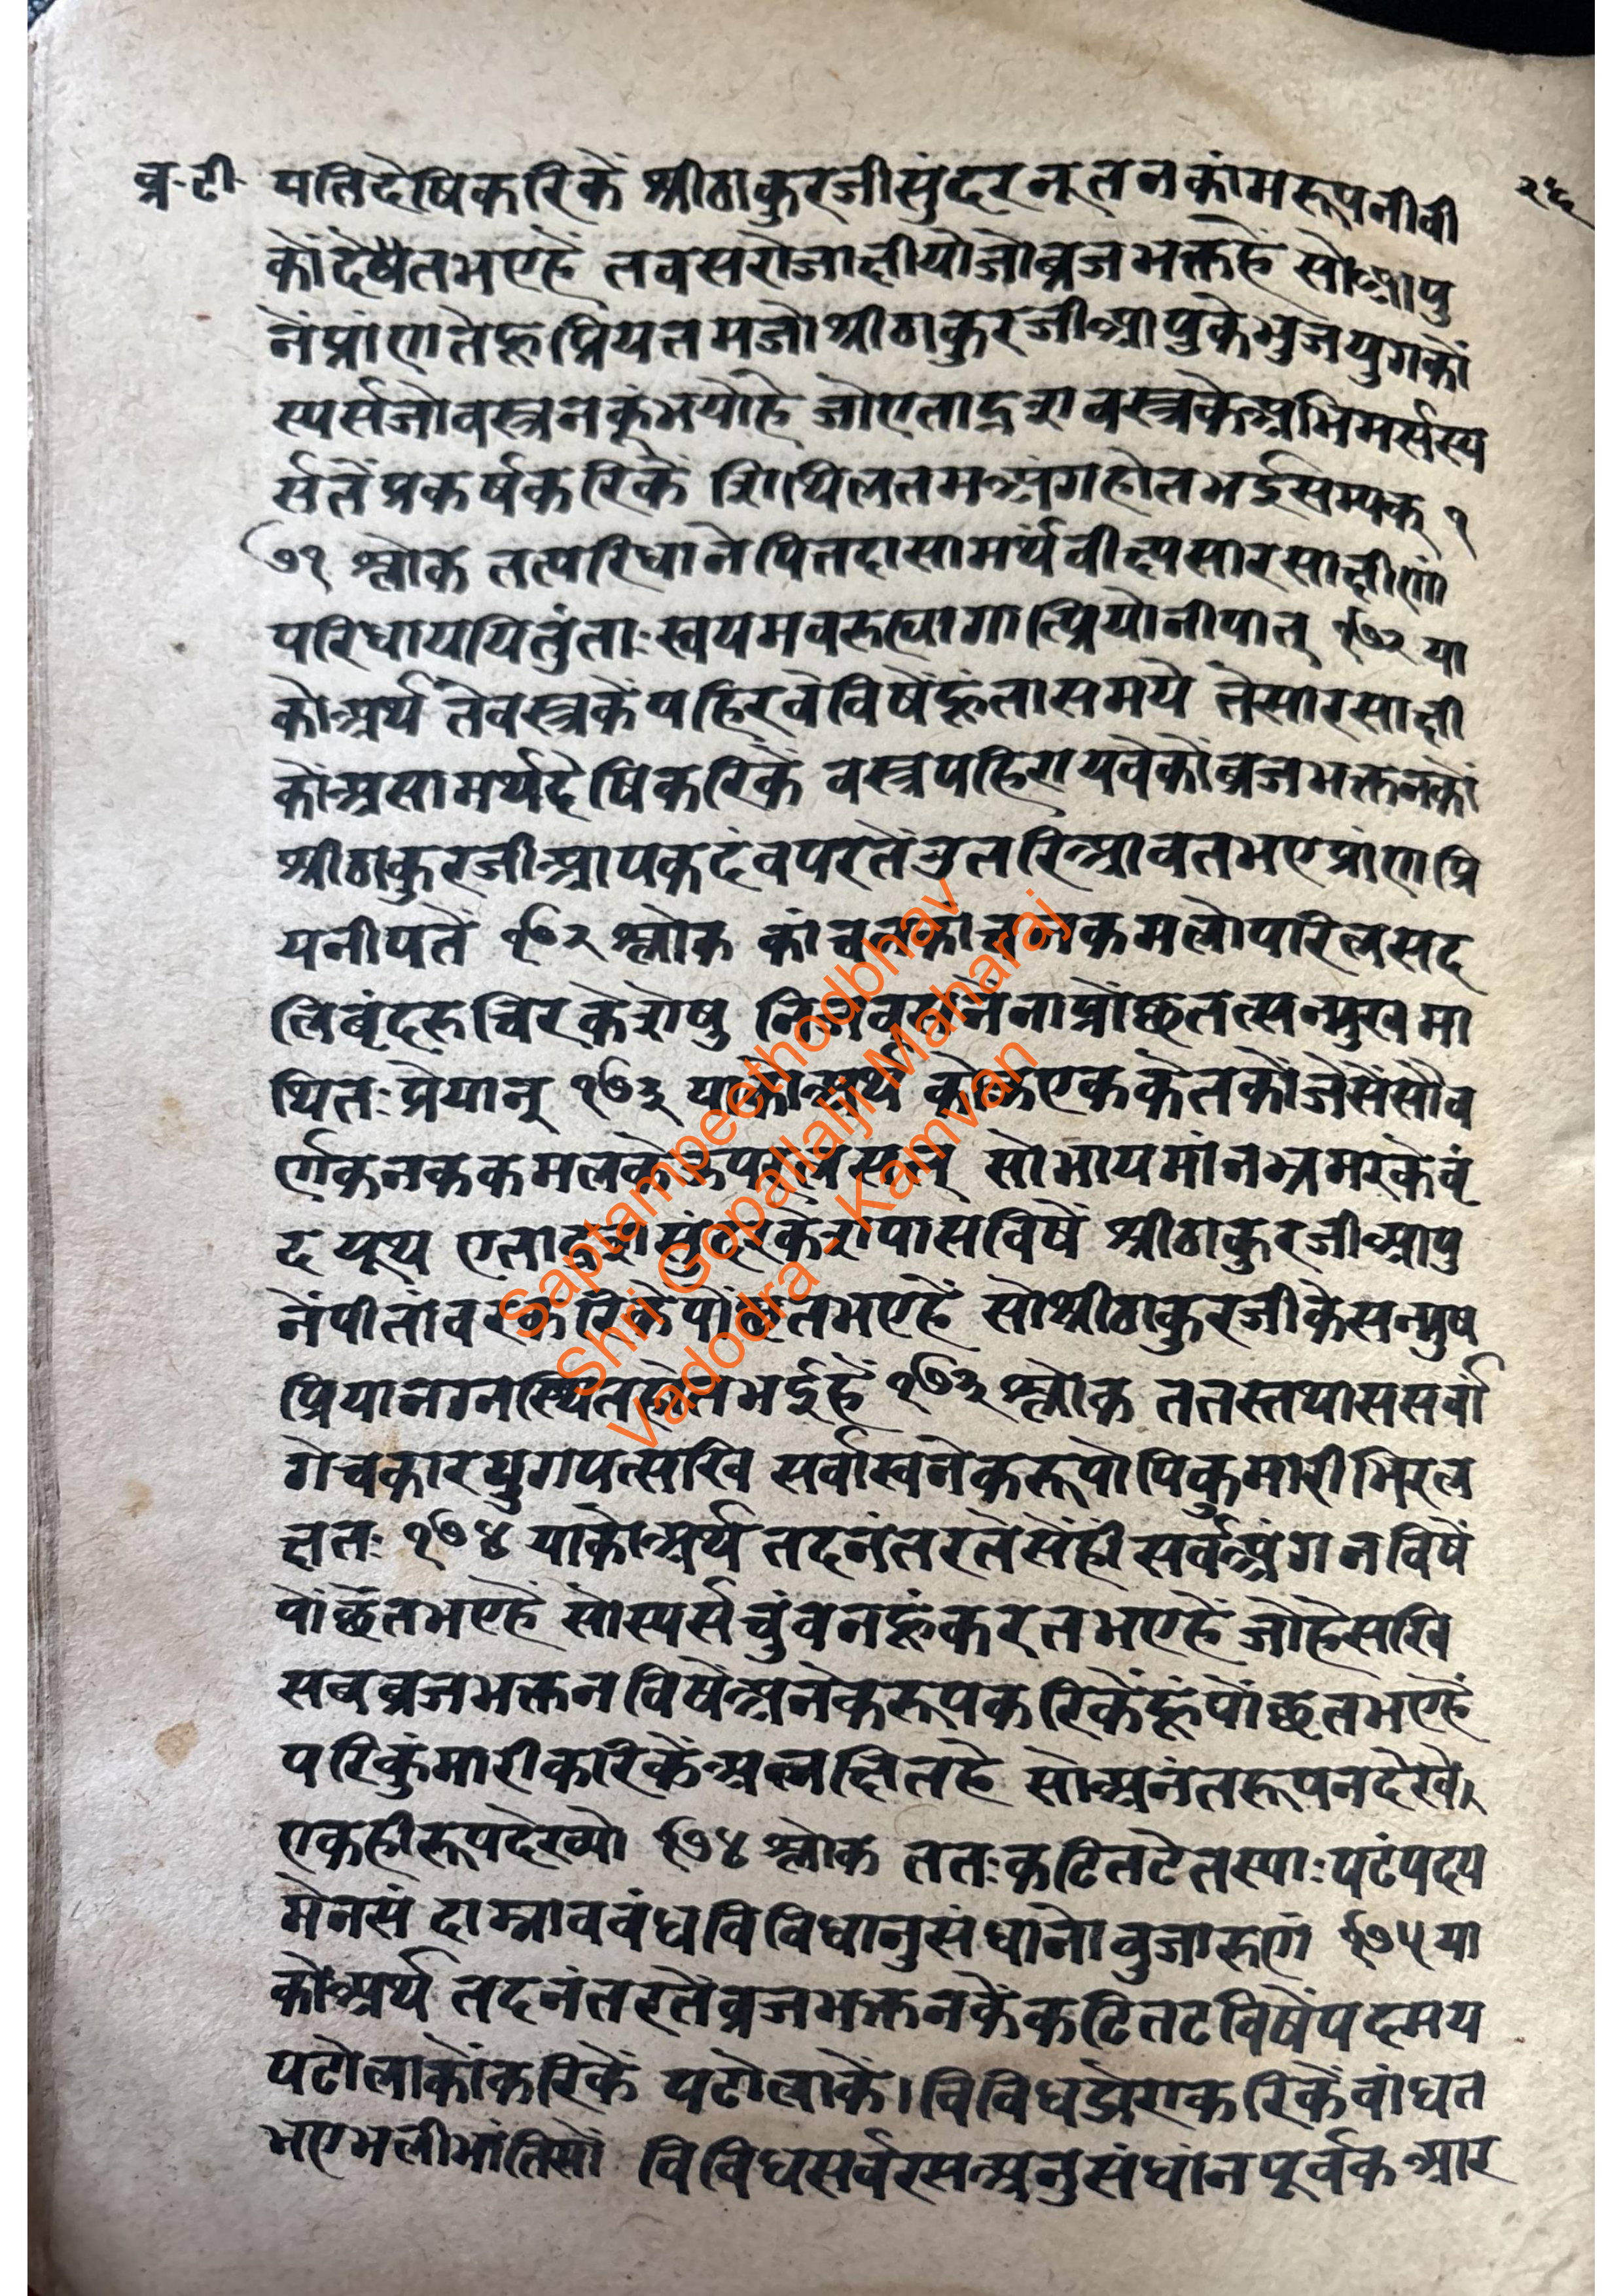 व्र-टी-
२६
पतिदेषिकरिकें श्रीठाकुरजीसुंदरनूतनकांमरूपनीवी
कोंदेषैतभएहैं तवसरोजाक्षीयोजोब्रजभक्तहें सोआपु
नेंप्रांणतेंहूप्रियतमजोश्रीठाकुरजीआपुकेभुजयुगकों
स्पर्सजोवस्त्रनकूंभयोहे जोएताद्रशवस्त्रकेअभिमर्सस्प
र्सतेंप्रकर्षकरिकें शिथिलतमअंगहोतभईसम्यक् १
७१ श्लोक तत्परिधानेपितदासामर्थंवीक्ष्यसारसाक्षीणां
परिधाययितुंताःस्वयमवरुह्यागात्प्रियोनीपात् १७२ या
कोअर्थ तेवस्त्रकेंपहिरवेविषेंहूंतासमयें तेसारसाक्षी
कोंअसामर्थदेषिकरिकें वस्त्रपहिरायवेकोंब्रजभक्तनकों
श्रीठाकुरजीआपकदंवपरतेंउतरिआवतभएप्रांणप्रि
यनीपतें १७२ श्लोक कांचनकांचनकमलोपरिलसद
लिबृंदरुचिरकेशेषु निजवसनेनाप्रोंछतत्सन्मुखमा
थितःप्रेयान् १७३ याकोअर्थ कोऊएककेतकोंजेसेंसौव
र्णकनककमलकेऊपरलसत् सोभायमांनभ्रमरकेवृं
दयूथ एताद्रशसुंदरकेशपासविषें श्रीठाकुरजीआपु
नेंपीतांवरकरिकेंपोंछतभएहें सोश्रीठाकुरजीकेसन्मुष
प्रियानग्नस्थितहोतभईहें १७३ श्लोक ततस्तथाससर्वां
गेचकारयुगपत्सखि सर्वास्वनेकरूपोपिकुमारीभिरल
क्षतः १७४ याकोअर्थ तदनंतरतेसेंहीसर्वअंगनविषें
पोंछतभएहें सोस्पर्सचुंवनहूंकरतभएहें जोहेसखि
सबब्रजभक्तनविषेंअनेकरूपकरिकेंहूंपोंछतभएहें
परिकुंमारीकरिकेंअलक्षितहे सोअनंतरूपनदेखे।
एकहीरूपदेख्यो १७४ श्लोक ततःकटितटेतस्याःपटंपदय
मेनसं दाम्नाववंधविविधानुसंधानोवुजारुणं १७५ या
कोअर्थ तदनंतरतेंब्रजभक्तनकेंकटितटविषेंपद्मय
पटोलाकोंकरिकें पटोलाकें।विविधडोराकरिकेंवांधत
भएभलीभांतिसों विविधसर्वरसअनुसंधांनपूर्वक आर
Saptampeethodbhav
Shri Gopallalji Maharaj
Vadodra - Kamvan